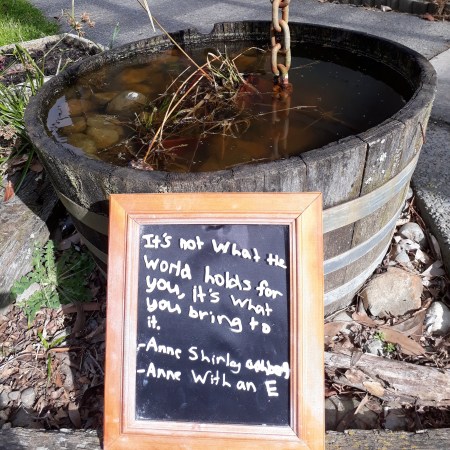 It's not What the
World holds for
you, It's what
you bring to
it.
-Anne Shirley
-Anne With an E